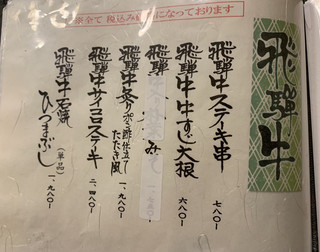 ※全て 税込み価格になっております
飛騨牛
飛騨牛ステーキ串 七八〇-
飛騨牛 牛すじ大根 六八〇-
飛騨牛炙りポン酢仕立て
たたき風 一、九八〇-
飛騨牛サイコロステーキ 二、四八〇-
飛騨牛石焼
ひつまぶし(単品) 一、九八〇-